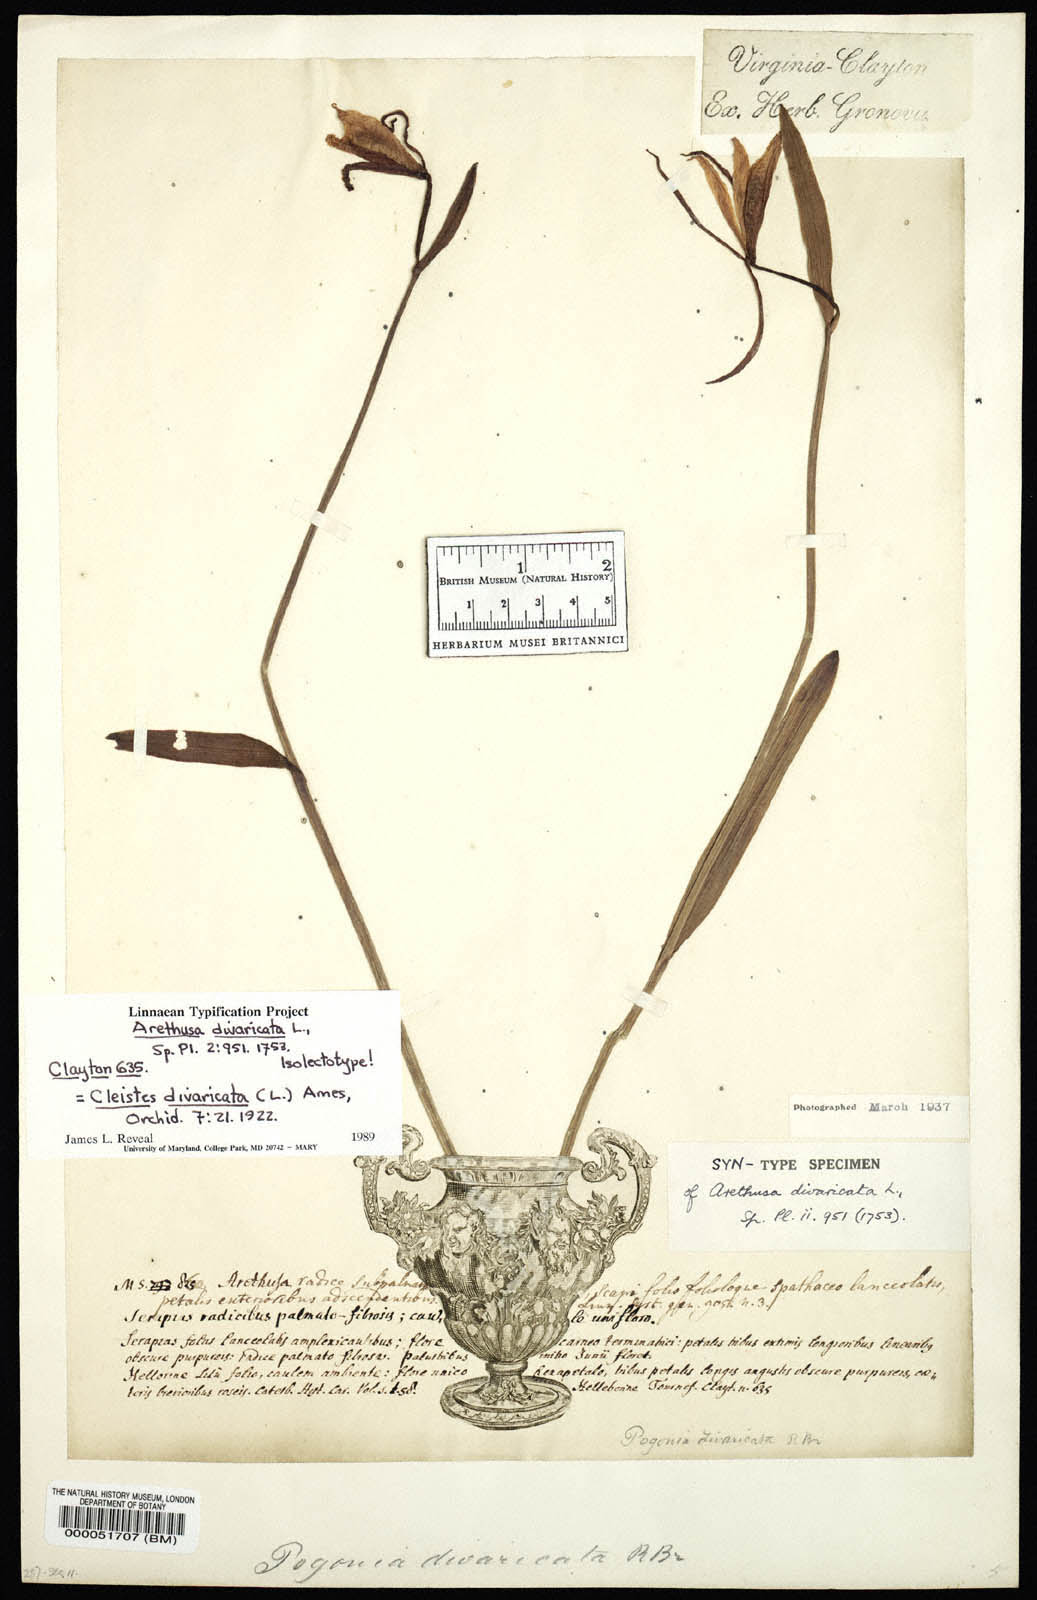 Virginia-Clayton
Ex. Herb. Gronovii
1 2
BRITISH MUSEUM (NATURAL HISTORY)
1 2 3 4 5
HERBARIUM MUSEI BRITANNICI
Linnaean Typification Project
Arethusa divaricata L.,
Sp. Pl. 2:951. 1753.
Isolectotype!
Clayton 635.
= Cleistes divaricata (L.) Ames,
Orchid. 7:21. 1922.
James L. Reveal 1989
University of Maryland, College Park, MD 20742 – MARY
Photographed March 1937
SYN- TYPE SPECIMEN
of Arethusa divaricata L.,
Sp. Pl. ii. 951 (1753).
M.S. Arethusa radice scapi folio folioque spathaceo lanceolatis,
petalis exterioribus adscendentibus n. 3.
Serapias radicibus palmato-fibrosis; unifloro.
Serapias foliis lanceolatis amplexicaulibus; flore carneo terminatrici: petalis tribus extimis longioribus
obscure purpureis: radice palmato fibrosa. palustribus Junii floret.
folio, caulem ambiente: flore unico hexapetalo, tribus petalis longis angustis obscure purpureis,
brevioribus roseis. Catesb. Hist. Car. Vol. 1. 58. Helleborine Tournef. Clayt. n. 635
Pogonia divaricata R Br
THE NATURAL HISTORY MUSEUM, LONDON
DEPARTMENT OF BOTANY
000051707 (BM)
Pogonia divaricata R Br
5